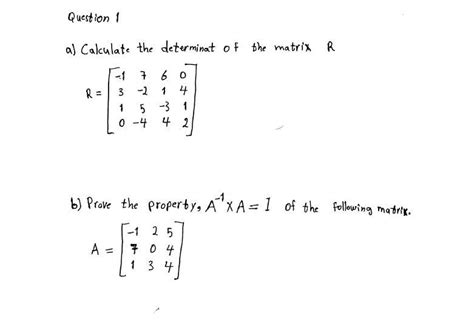 Question 1
a) Calculate the determinat of the matrix R
R = [-1 7 6 0
3 -2 1 4
1 5 -3 1
0 -4 4 2]
b) Prove the property, A⁻¹ X A = I of the following matrix.
A = [-1 2 5
7 0 4
1 3 4]